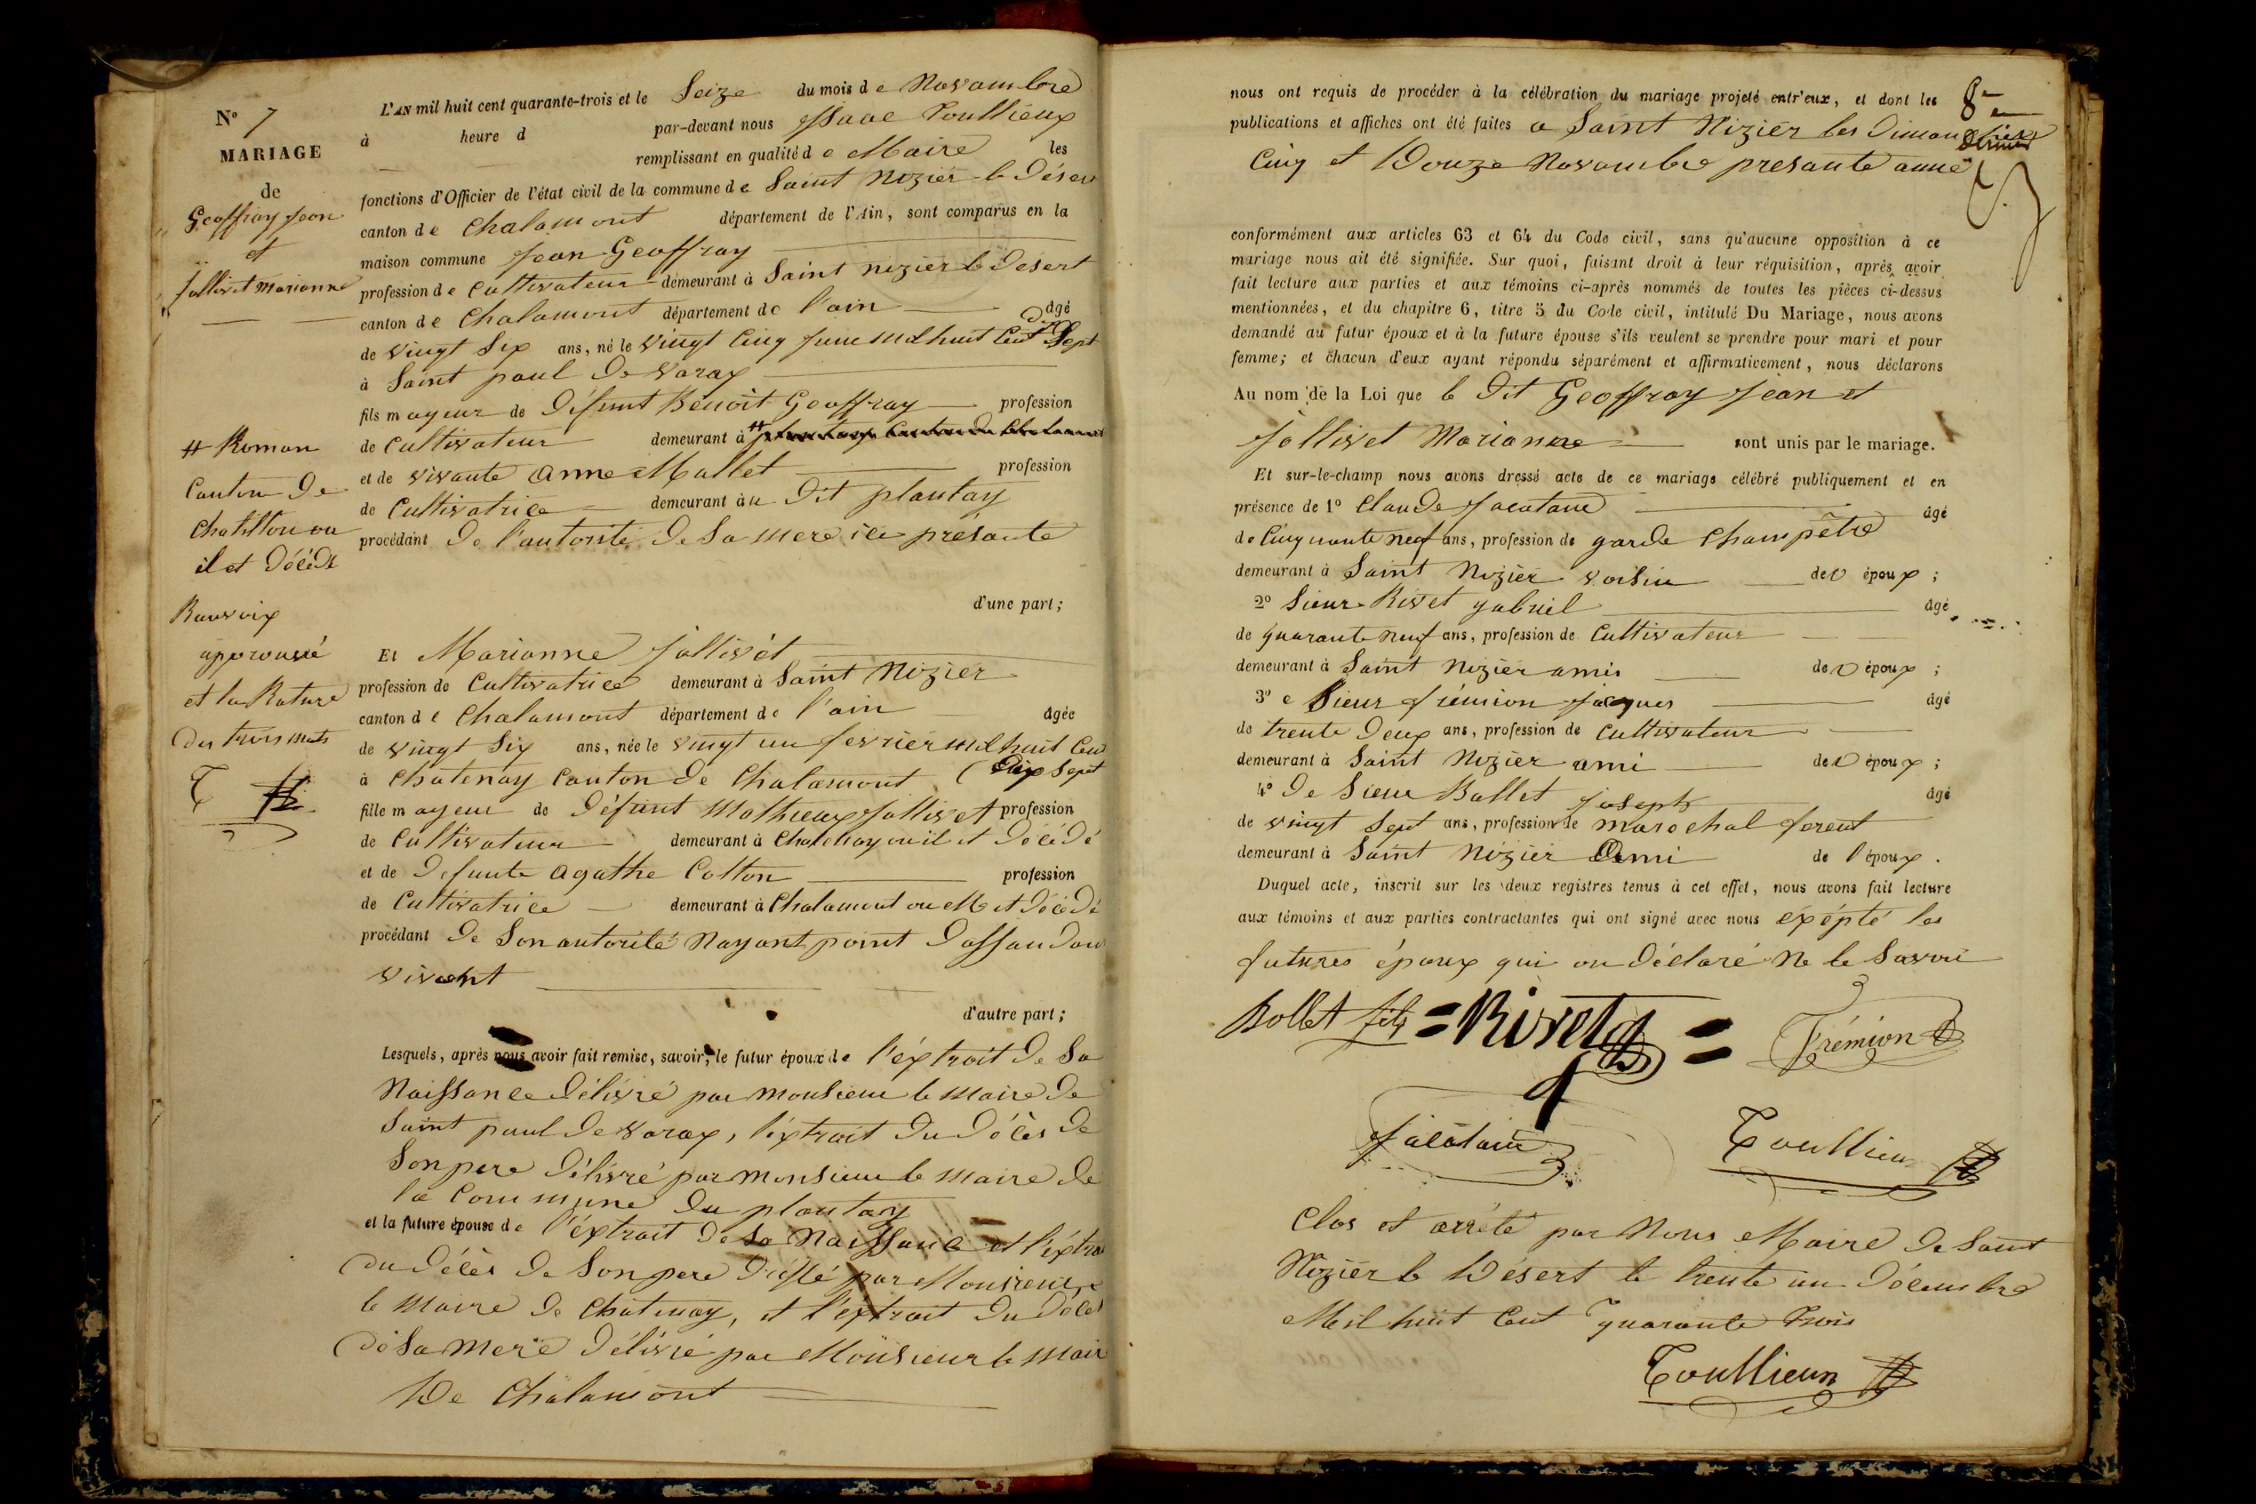 N° 7
MARIAGE
de
Geoffray Jean
et
Jollivet Marianne
L'AN mil huit cent quarante-trois et le Seize du mois de Novambre
à heure d par-devant nous Toullieux
remplissant en qualité de Maire les
fonctions d'Officier de l'état civil de la commune de Saint Nizier le Désert
canton de Chalamont département de l'Ain, sont comparus en la
maison commune Jean Geoffray
profession de Cultivateur demeurant à Saint nizier le Desert
canton de Chalamont département de l'ain âgé
de vingt Six ans, né le vingt Cinq mil huit Cent Dix Sept
à Saint paul De varax
fils mayeur de Défunt Benoit Geoffray profession
de Cultivateur demeurant à #
# Roman
Canton De
Chatillon ou
il et Décédé
Ranvoix
aprouvé
et la Rature
Des trois mots
T
et de vivante Anne Mallet profession
de Cultivatrice demeurant àu Dit plantay
procédant De l'autorité De Sa mere ici présante
d'une part;
Et Marianne Jollivet
profession de Cultivatrice demeurant à Saint Nizier
canton de Chalamont département de l'ain âgée
de vingt Six ans, née le vingt un fevrier mil huit Cen
à Chatenay Canton De Chalamont (Dix Sept
fille mayeur de Défunt Mathieux Jollivet profession
de Cultivateur demeurant à Chatenay ou il et Décédé
et de Defunte Agathe Cotton profession
de Cultivatrice demeurant à Chalamont ou elle et Décédé
procédant De Son autorité Nayant point Dassandons
vivant
d'autre part;
Lesquels, après nous avoir fait remise, savoir, le futur époux de l'éxtrait De Sa
Naissance Délivré par monsieur le Maire De
Saint paul De varax, l'éxtrait Du Décès De
Son pere Délivré par monsieur le Maire De
la Commune Du plantay
et la future épouse de l'éxtrait De Sa Naissance et l'éxtra
Du Décès De Son pere par Monsieur
le Maire De Chatenay, et l'éxtrait Du Décès
De Sa Mere Délivré par Monsieur le Mair
De Chalamont
8e
Dernier
nous ont requis de procéder à la célébration du mariage projeté entr'eux, et dont les
publications et affiches ont été faites a Saint Nizier les Dimanches
Cinq et Douze Novambre presante anné
conformément aux articles 63 et 64 du Code civil, sans qu'aucune opposition à ce
mariage nous ait été signifiée. Sur quoi, faisant droit à leur réquisition, après avoir
fait lecture aux parties et aux témoins ci-après nommés de toutes les pièces ci-dessus
mentionnées, et du chapitre 6, titre 5 du Code civil, intitulé Du Mariage, nous avons
demandé au futur époux et à la future épouse s'ils veulent se prendre pour mari et pour
femme; et chacun d'eux ayant répondu séparément et affirmativement, nous déclarons
Au nom de la Loi que le Dit Geoffray Jean et
Jollivet Marianne sont unis par le mariage.
Et sur-le-champ nous avons dressé acte de ce mariage célébré publiquement et en
présence de 1° Claude Jacatane âgé
de Cinquante neuf ans, profession de garde Champêtre
demeurant à Saint Nizier voisin de époux;
2° Sieur Rivet gabriel âgé
de quarante neuf ans, profession de Cultivateur
demeurant à Saint Nizier amis de époux;
3° e Sieur frémion Jacques âgé
de trente Deux ans, profession de Cultivateur
demeurant à Saint Nizier ami de époux;
4° De Sieur Bollet Joseph âgé
de vingt Sept ans, profession de marechal ferent
demeurant à Saint Nizier Ami de l'époux.
Duquel acte, inscrit sur les deux registres tenus à cet effet, nous avons fait lecture
aux témoins et aux parties contractantes qui ont signé avec nous éxépté les
futures époux qui on Déclaré Ne le Savoir
Bollet fils = Rivet g = Frémion
Jacatain Toullieux
Clos et arrété par Nous Maire De Saint
Nizier le Désert le trente un Décembre
Mil huit Cent quarante trois
Toullieux